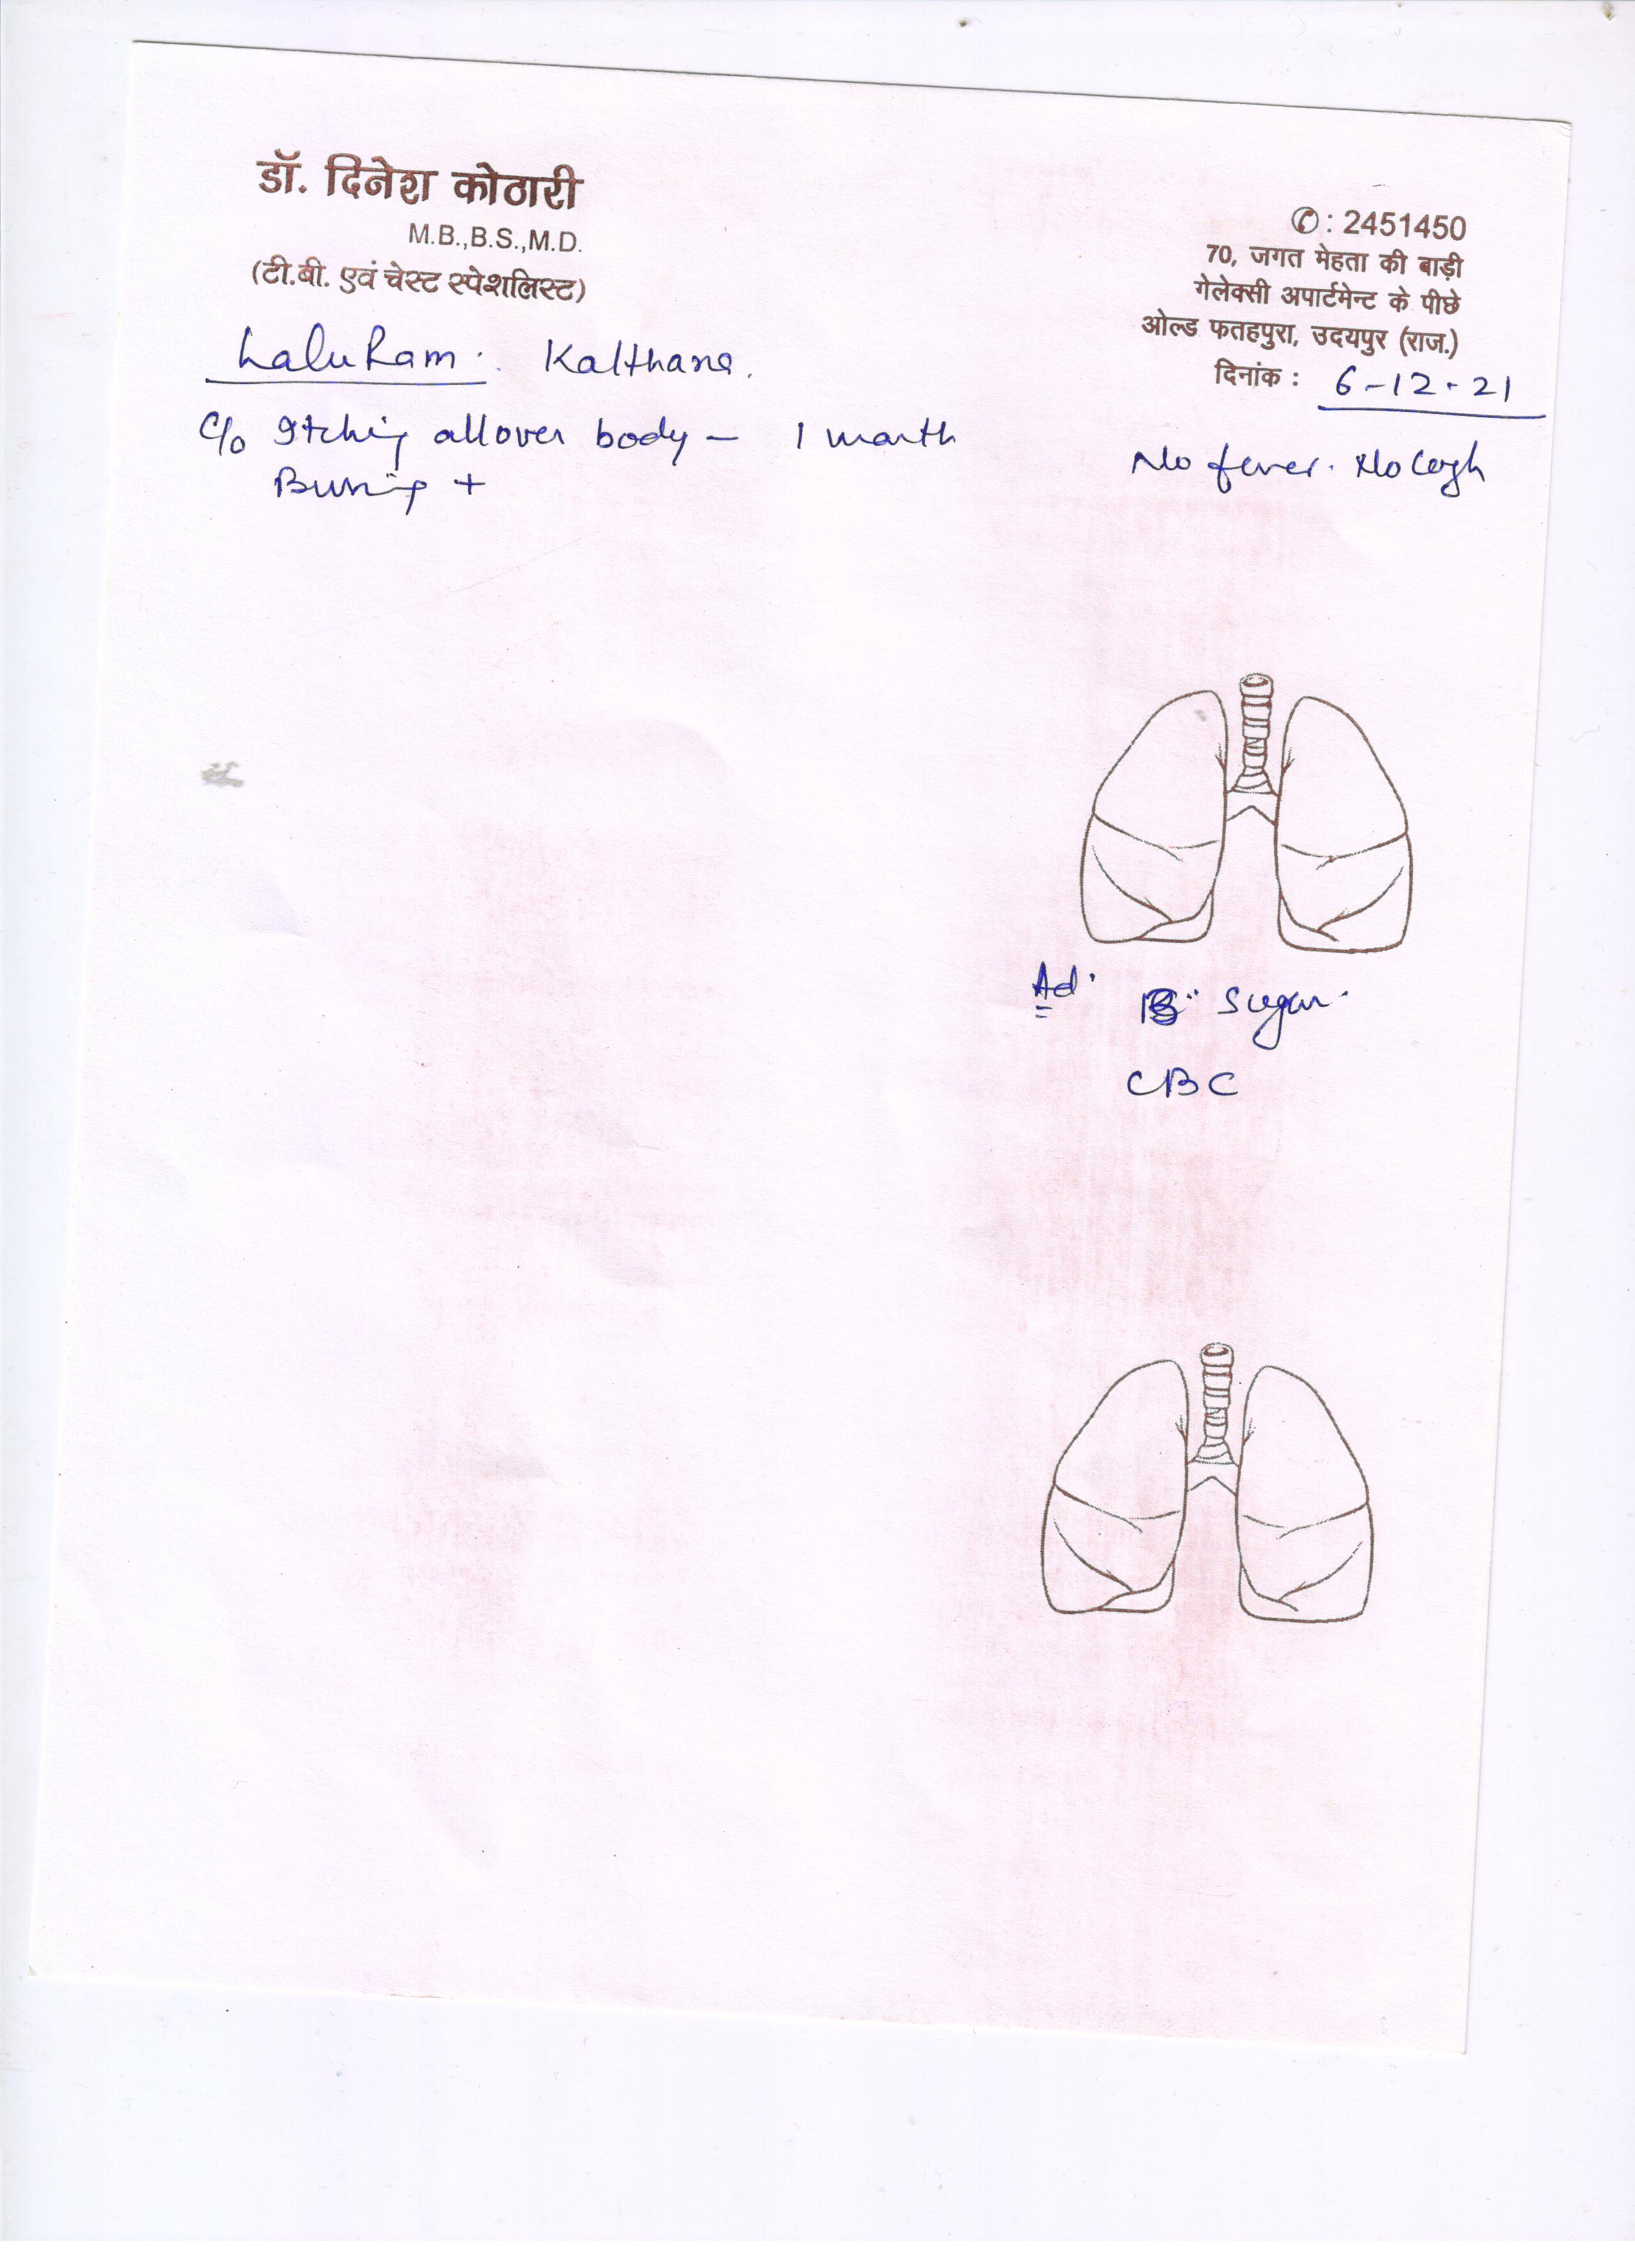 डॉ. दिनेश कोठारी
M.B.,B.S.,M.D.
(टी.बी. एवं चेस्ट स्पेशलिस्ट)
✆ : 2451450
70, जगत मेहता की बाड़ी
गेलेक्सी अपार्टमेन्ट के पीछे
ओल्ड फतहपुरा, उदयपुर (राज.)
दिनांक : 6-12-21
Lalu Ram. Kalthana.
C/o Itching all over body - 1 month
Burning +
No fever. No Cough
Ad.
B. Sugar.
CBC